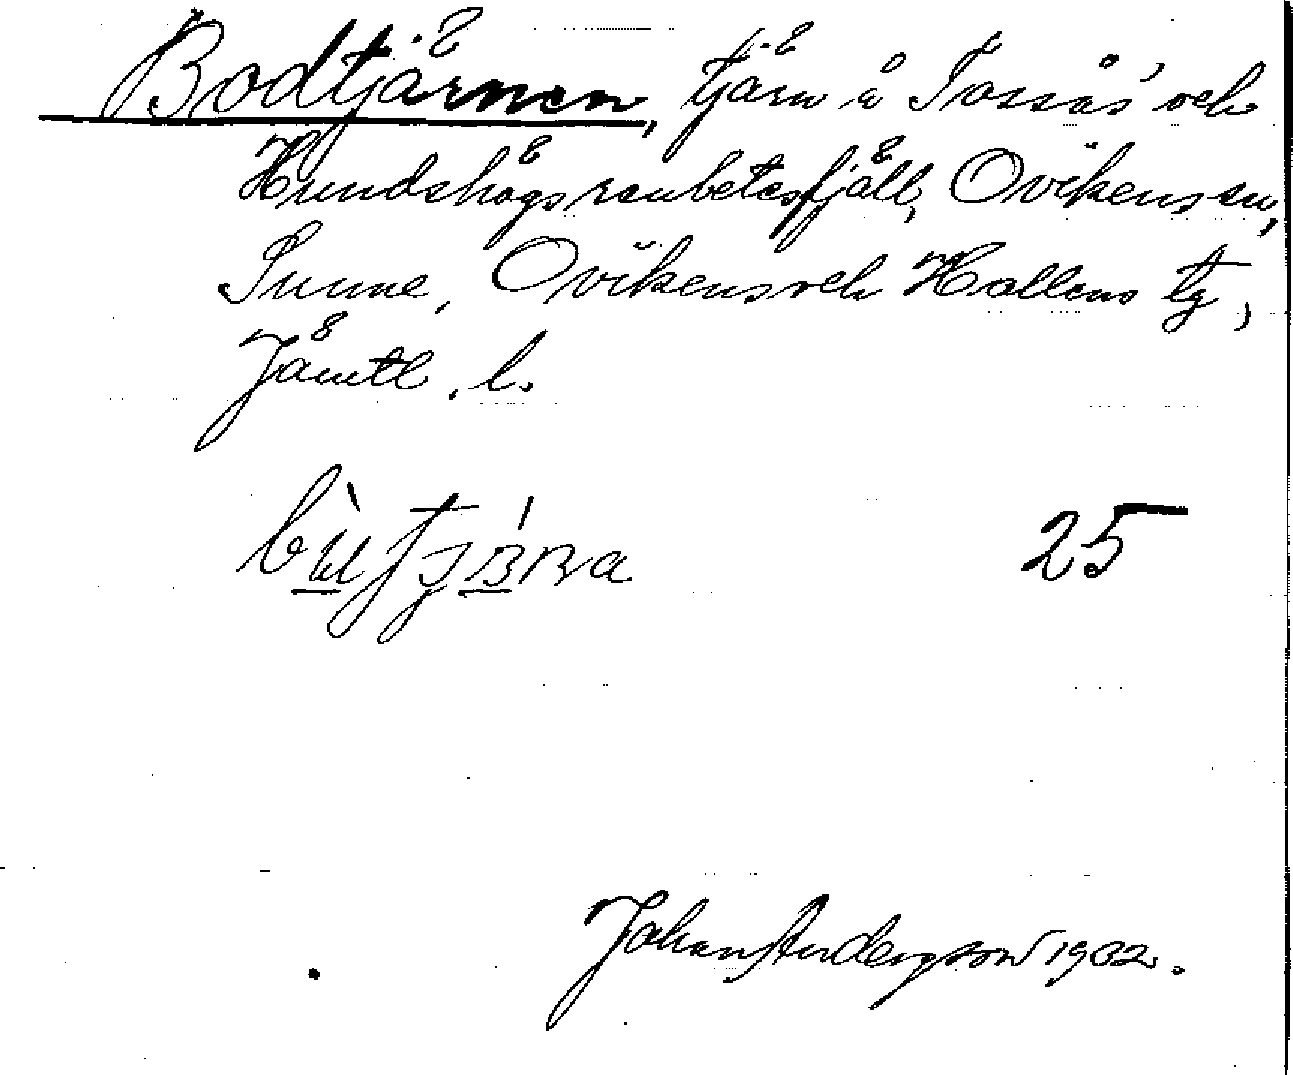 Bodtjärnen, tjärn å Tossås' och
Hundshögs renbetesfjäll, Ovikens sn,
Sunne, Ovikens och Hallens tg,
Jämtl. l.
25
Johan Anderson 1902.